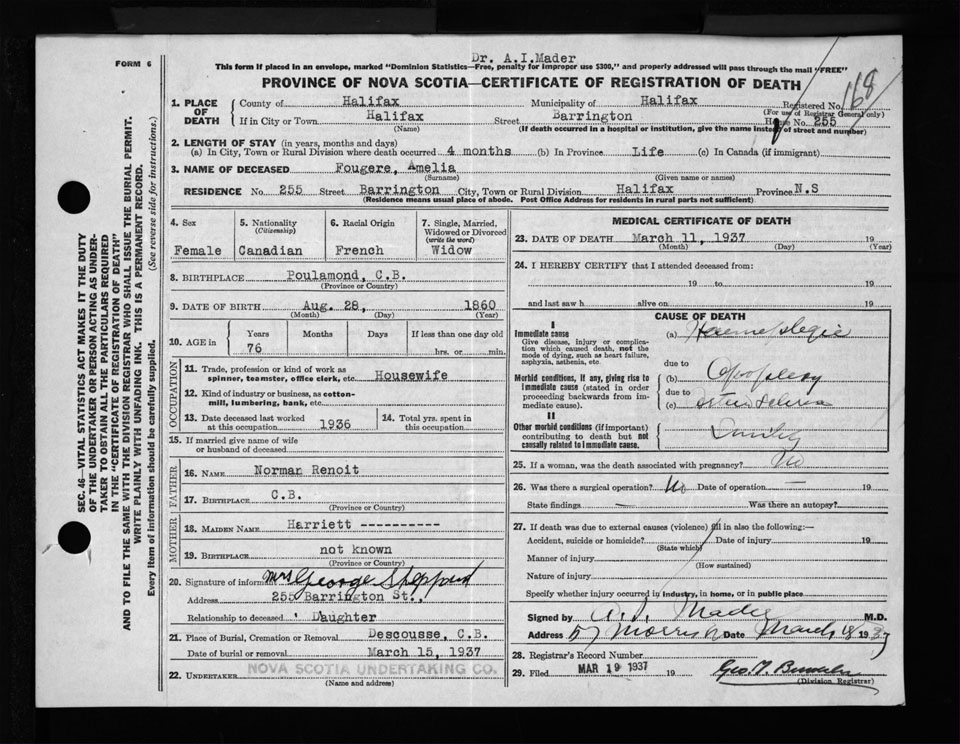 Dr. A.I.Mader
FORM 6
This form if placed in an envelope, marked "Dominion Statistics—Free, penalty for improper use $300," and properly addressed will pass through the mail "FREE"
PROVINCE OF NOVA SCOTIA—CERTIFICATE OF REGISTRATION OF DEATH
168
1. PLACE OF DEATH
County of Halifax Municipality of Halifax Registered No.
(For use of Registrar General only)
If in City or Town Halifax Street Barrington House No. 255
(Name) (If death occurred in a hospital or institution, give the name instead of street and number)
2. LENGTH OF STAY (in years, months and days)
(a) In City, Town or Rural Division where death occurred 4 months (b) In Province Life (c) In Canada (if immigrant)
3. NAME OF DECEASED Fougere, Amelia
(Surname) (Given name or names)
RESIDENCE No. 255 Street Barrington City, Town or Rural Division Halifax Province N.S
(Residence means usual place of abode. Post Office Address for residents in rural parts not sufficient)
4. Sex Female
5. Nationality (Citizenship) Canadian
6. Racial Origin French
7. Single, Married, Widowed or Divorced (write the word) Widow
8. BIRTHPLACE Poulamond, C.B.
(Province or Country)
9. DATE OF BIRTH Aug. 28, 1860
(Month) (Day) (Year)
10. AGE in Years Months Days If less than one day old
76 hrs. or min.
OCCUPATION
11. Trade, profession or kind of work as spinner, teamster, office clerk, etc. Housewife
12. Kind of industry or business, as cotton-mill, lumbering, bank, etc.
13. Date deceased last worked at this occupation 1936
14. Total yrs. spent in this occupation
15. If married give name of wife or husband of deceased
FATHER
16. NAME Norman Renoit
17. BIRTHPLACE C.B.
(Province or Country)
MOTHER
18. MAIDEN NAME Harriett ----------
19. BIRTHPLACE not known
(Province or Country)
20. Signature of informant Mrs George Sheppard
Address 255 Barrington St.,
Relationship to deceased Daughter
21. Place of Burial, Cremation or Removal Descousse, C.B.
Date of burial or removal March 15, 1937
22. UNDERTAKER NOVA SCOTIA UNDERTAKING CO.
(Name and address)
MEDICAL CERTIFICATE OF DEATH
23. DATE OF DEATH March 11, 1937 19
(Month) (Day) (Year)
24. I HEREBY CERTIFY that I attended deceased from:
19 to 19
and last saw h alive on 19
CAUSE OF DEATH
I
Immediate cause (a)
Give disease, injury or complication which caused death, not the mode of dying, such as heart failure, asphyxia, asthenia, etc.
due to
Morbid conditions, if any, giving rise to immediate cause (stated in order proceeding backwards from immediate cause).
(b) Apoplexy
due to
(c)
II
Other morbid conditions (if important) contributing to death but not causally related to immediate cause.
25. If a woman, was the death associated with pregnancy? No
26. Was there a surgical operation? No Date of operation — 19
State findings — Was there an autopsy?
27. If death was due to external causes (violence) fill in also the following:—
Accident, suicide or homicide? Date of injury 19
(State which)
Manner of injury
(How sustained)
Nature of injury
Specify whether injury occurred in industry, in home, or in public place
Signed by A. I. Mader M.D.
Address 57 Morris Date March 18 1937
28. Registrar's Record Number
29. Filed MAR 19 1937 19
(Division Registrar)
SEC. 46—VITAL STATISTICS ACT MAKES IT THE DUTY
OF THE UNDERTAKER OR PERSON ACTING AS UNDER-
TAKER TO OBTAIN ALL THE PARTICULARS REQUIRED
IN THE "CERTIFICATE OF REGISTRATION OF DEATH"
AND TO FILE THE SAME WITH THE DIVISION REGISTRAR WHO SHALL ISSUE THE BURIAL PERMIT.
WRITE PLAINLY WITH UNFADING INK. THIS IS A PERMANENT RECORD.
Every item of information should be carefully supplied. (See reverse side for instructions.)